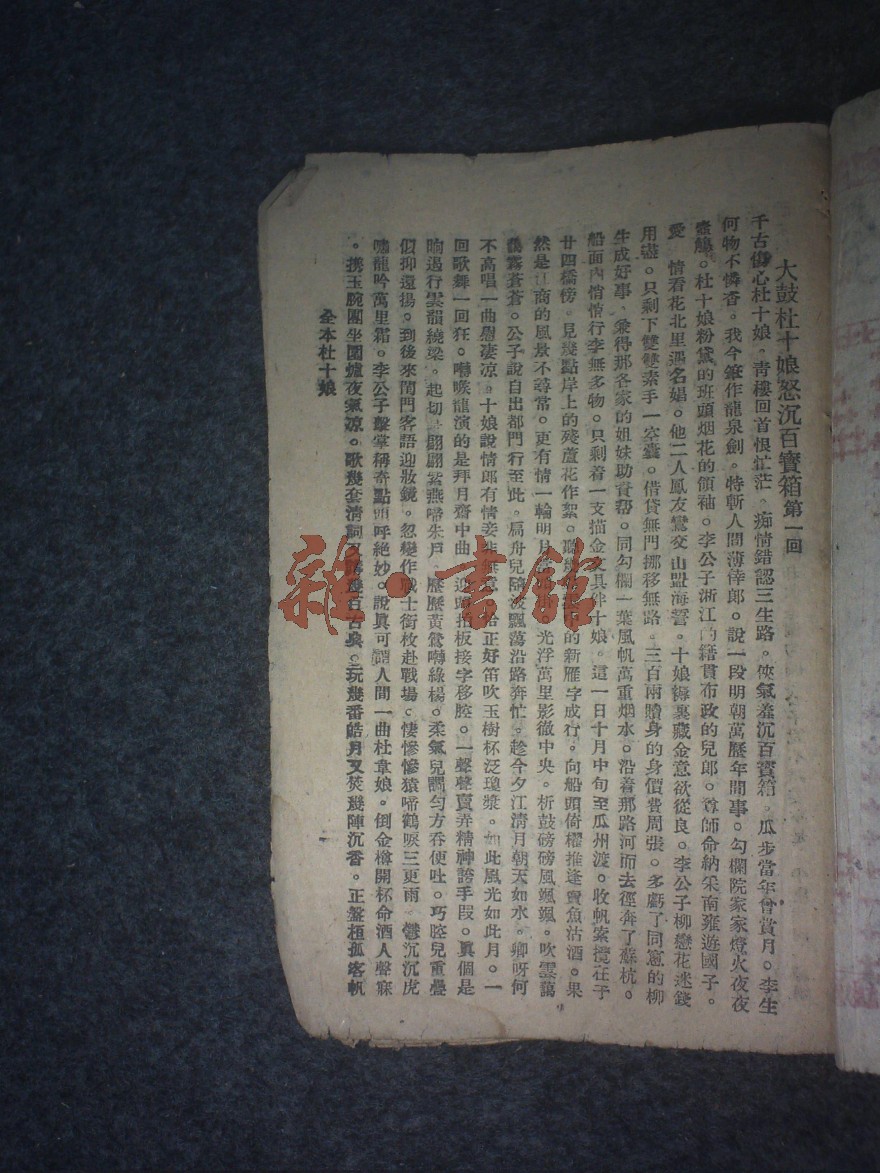 大鼓杜十娘怒沉百寶箱第一回
千古傷心杜十娘。青樓回首恨茫茫。痴情錯認三生路。俠氣羞沉百寶箱。瓜步當年曾賞月。李生
何物不憐香。我今筆作龍泉劍。特斬人間薄倖郎。說一段明朝萬歷年間事。勾欄院家家燈火夜夜
笙觴。杜十娘粉黛的班頭烟花的領袖。李公子浙江的籍貫布政的兒郎。尊師命納采南雍遊國子。
愛 情看花北里遇名娼。他二人鳳友鸞交山盟海誓。十娘褥裏藏金意欲從良。李公子柳戀花迷錢
用盡。只剩下雙雙素手一空囊。借貸無門挪移無路。三百兩贖身的身價費周張。多虧了同窻的柳
生成好事、乘得那各家的姐妹助資帮。同勾欄一葉風帆萬重烟水。沿着那路河而去徑奔了蘇杭。
船面內悄悄行李無多物。只剩着一支描金文具伴十娘。這一日十月中旬至瓜州渡。收帆索攬在于
廿四橋傍。見幾點岸上的殘蘆花作絮。聽 的新雁字成行。向船頭倚櫂推逢賣魚沽酒。果
然是江商的風景不尋常。更有情一輪明月 光浮萬里影徹中央。析鼓磅磅風颯颯。吹雲蕩
霧蒼蒼。公子說自出都門行至此。扁舟兒隨波飄蕩沿路奔忙。趁今夕江清月朗天如水。卿呀何
不高唱一曲慰凄涼。十娘說情郎有情妾 無意 恰正好笛吹玉樹杯泛瓊漿。如此風光如此月。一
回歌舞一回狂。囀喉龍演的是拜月齋中曲 迎頭拍板接字移腔。一聲聲賣弄精神誇手段。眞個是
响遏行雲韻繞梁。起切 翩翩紫燕啼朱戶 歷歷黃鶯囀綠楊。柔氣兒調勻方吞便吐。巧腔兒重疊
似抑還揚。到後來閨門客語迎妝鏡。忽變作戰士銜枚赴戰場。悽慘慘猿啼鶴唳三更雨 鬱沉沉虎
嘯龍吟萬里霜。李公子擊掌稱奇點頭呼絶妙。說眞可謂人間一曲杜韋娘。倒金樽開杯命酒人聲寂
。携玉腕團坐圍爐夜氣凉。歌幾套清詞又 幾百古典。玩幾番皓月又焚幾陣沉香。正盤桓孤客帆
全本杜十娘
一
雜·書館